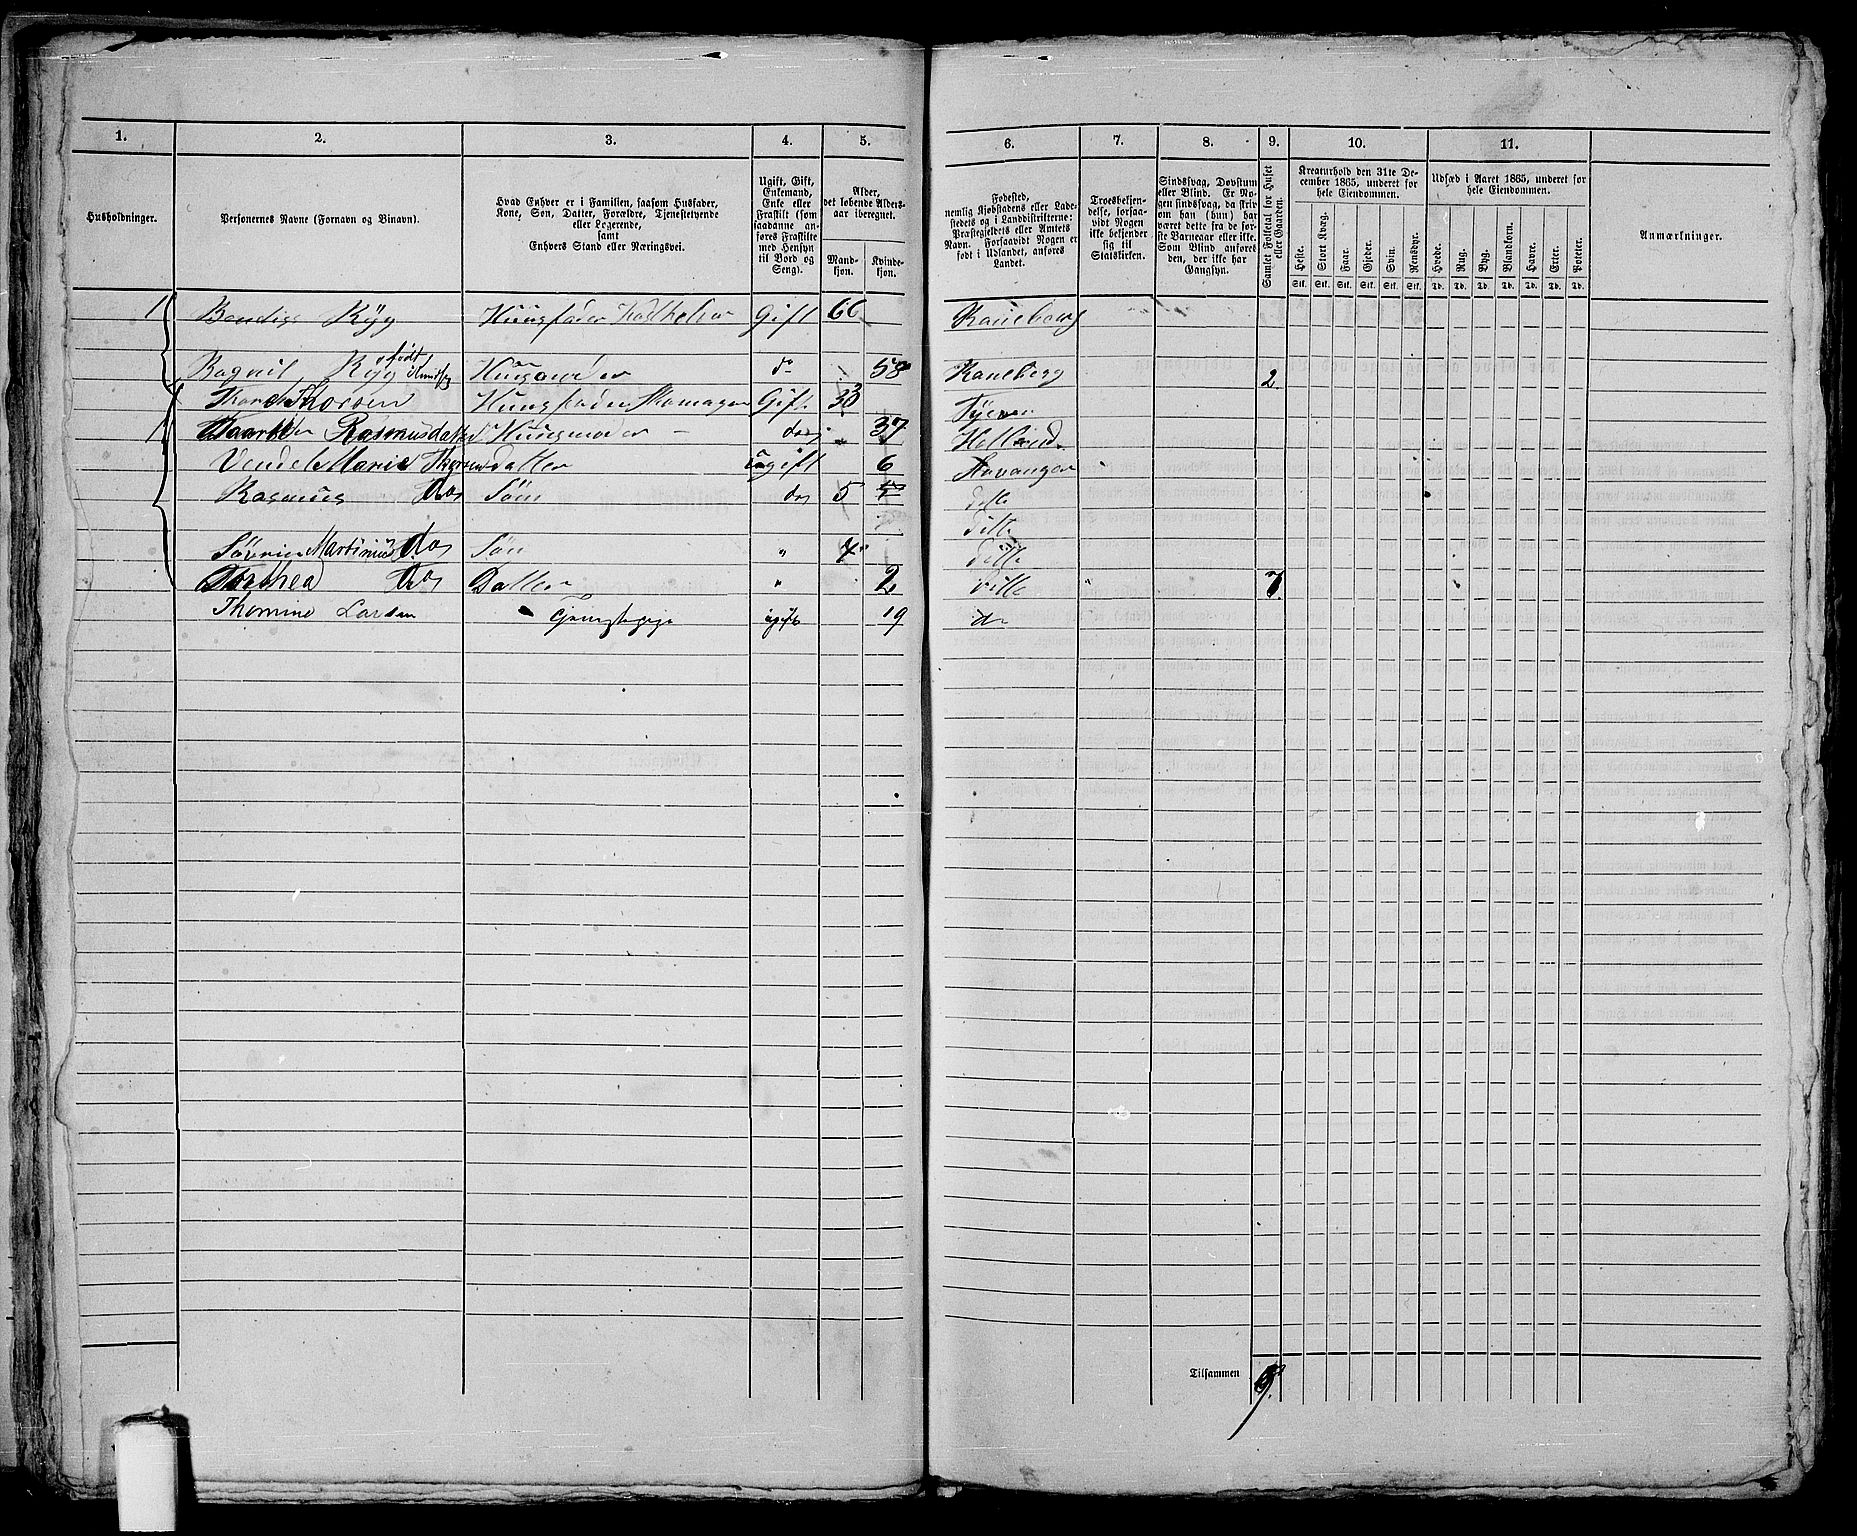 1.
2.
3.
4.
5.
6.
7.
8.
9.
10.
11.
Husholdninger.
Personernes Navne (Fornavn og Binavn).
Hvad Enhver er i Familien, saasom Husfader,
Kone, Søn, Datter, Forældre, Tjenestetyende
eller Logerende,
samt
Enhvers Stand eller Næringsvei.
Ugift, Gift,
Enkemand,
Enke eller
Fraskilt (som
saadanne an-
føres Fraskilte
med Hensyn
til Bord og
Seng).
Alder,
det løbende Alders-
aar iberegnet.
Mand-
kjøn.
Kvinde-
kjøn.
Fødested,
nemlig Kjøbstadens eller Lade-
stedets og i Landdistrikterne:
Præstegjeldets eller Amtets
Navn. Forsaavidt Nogen er
født i Udlandet, anføres
Landet.
Troesbekjen-
delse, forsaa-
vidt Nogen
ikke bekjender
sig til
Statskirken.
Sindssvag, Døvstum
eller Blind. Er No-
gen sindssvag, da skriv
om han (hun) har
været dette fra de før-
ste Barneaar eller ikke.
Som Blind anføres
den, der ikke har
Gangsyn.
Samlet Folketal for Huset
eller Gaarden.
Kreaturhold den 31te De-
cember 1865, underet for
hele Eiendommen.
Heste. Stort Kvæg. Faar. Gjeder. Svin. Rensdyr.
Stk. Stk. Stk. Stk. Stk. Stk.
Udsæd i Aaret 1865, underet for
hele Eiendommen.
Hvede. Rug. Byg. Blandkorn. Havre. Erter. Poteter.
Td. Td. Td. Td. Td. Td. Td.
Anmærkninger.
1 Bendigs Ryg Huusfader Gift 66 Raneberg
Ragnil Ryg født Huusmoder do 58 Raneberg 2
Thore Thorsen Huusfader Skomager Gift 33
1 Rasmusdatter Huusmoder do 37
Vendele Marie Thorsendatter ugift 6 Stavanger
Rasmus do Søn do 5 ditto
ditto
Martinus do Søn " 4 ditto
Dorthea do Datter " 2 ditto " 7
Thomine Larsen Tjenstepige ugift 19 do
Tilsammen 9.